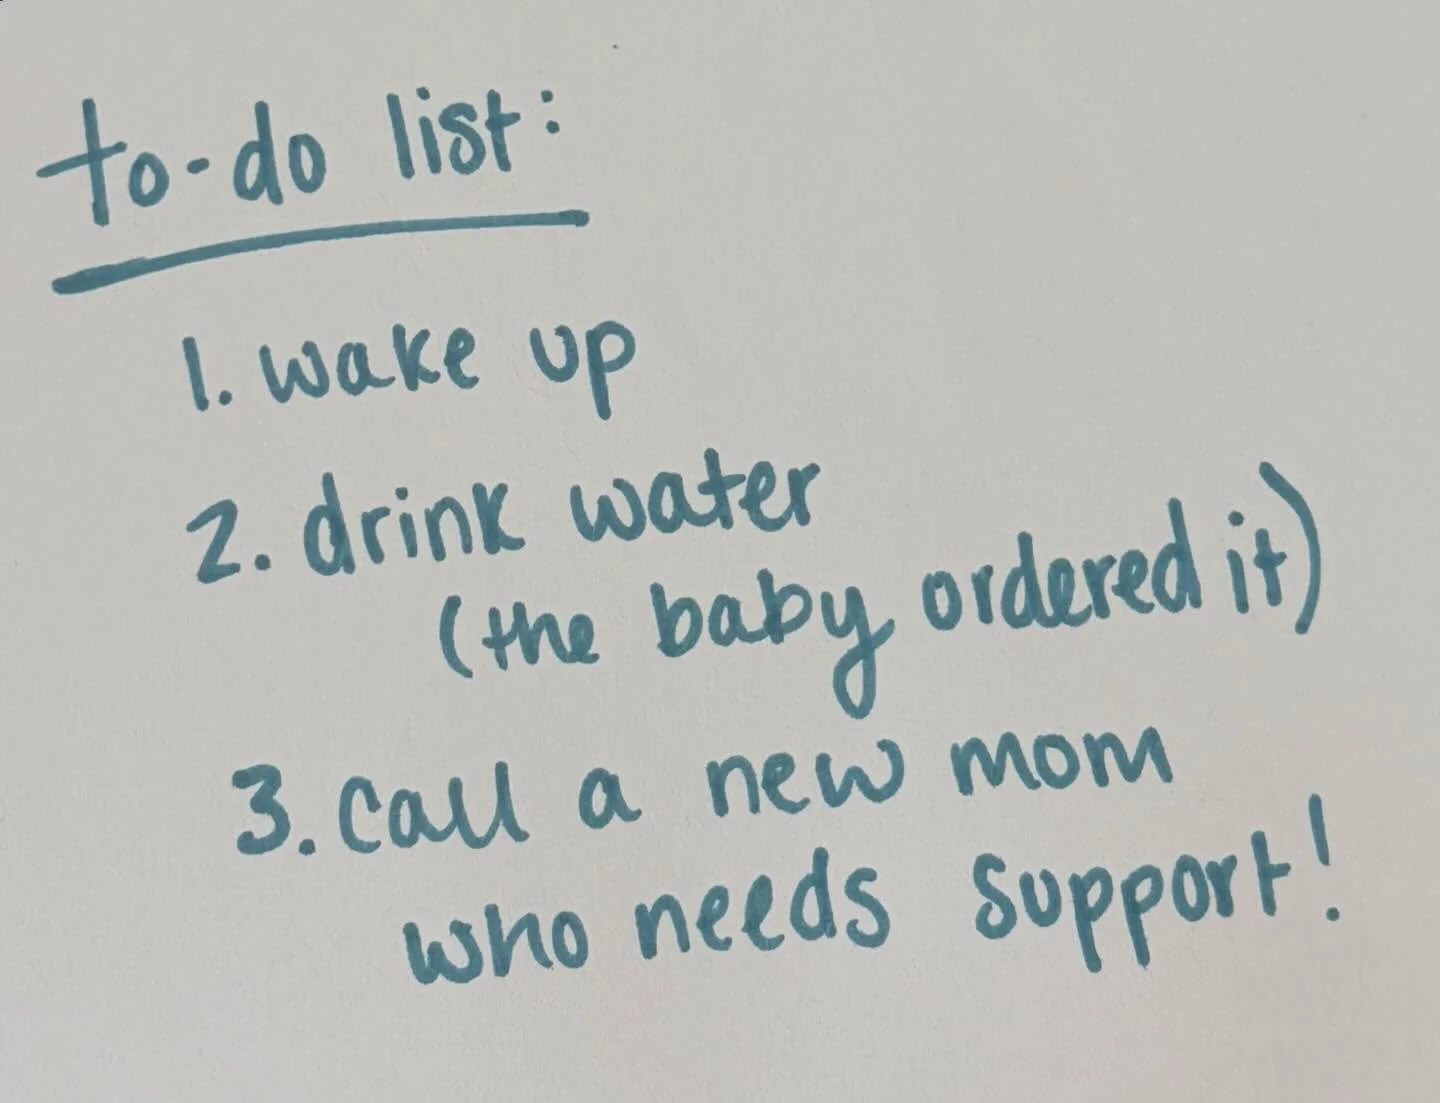 to-do list:
1. wake up
2. drink water
(the baby ordered it)
3. call a new mom
who needs support!